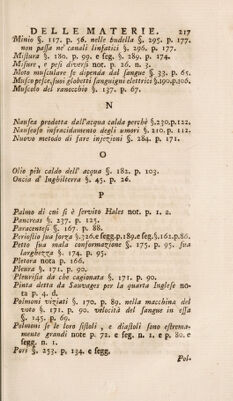 DELLE MATERIE. 217
Minio §. 117. p. 56. nelle budella §. 295. p. 177.
non passa ne' canali linfatici §. 296. p. 177.
Mistura §. 180. p. 99. e seg. §. 289. p. 174.
Misure, e pesi diversi not. p. 26. n. 3.
Moto musculare se dipenda dal sangue §. 33. p. 65.
Muscoloso, suoi globetti sanguigni elettrici §.190.p.106.
Muscolo del ranocchio §. 137. p. 67.
N
Nausea prodotta dall'acqua calda perchè §.230.p.122.
Nauseoso infracidamento degli umori §. 210. p. 112.
Nuovo metodo di fare injezioni §. 284. p. 171.
O
Olio più caldo dell' acqua §. 182. p. 103.
Oncia d' Inghilterra §. 45. p. 26.
P
Palmo di cui si è servito Hales not. p. 1. 2.
Pancreas §. 237. p. 125.
Paracentesi §. 167. p. 88.
Periostio sua forza §.326.e segg.p.189.e seg.§.162.p.86.
Petto sua mala conformazione §. 175. p. 95. sua
larghezza §. 174. p. 95.
Pletora nota p. 166.
Pleura §. 171. p. 90.
Pleurisia da che cagionata §. 171. p. 90.
Pinta detta da Sauvages per la quarta Inglese no-
ta p. 4. d.
Polmoni viziati §. 170. p. 89. nella macchina del
voto §. 171. p. 90. velocità del sangue in essa
§. 145. p. 69.
Polmoni se le loro sistoli, e diastoli sono estrema-
mente grandi note p. 72. e seg. n. 1. e p. 80. e
segg. n. 1.
Pori §. 253. p. 134. e segg.
Pol-